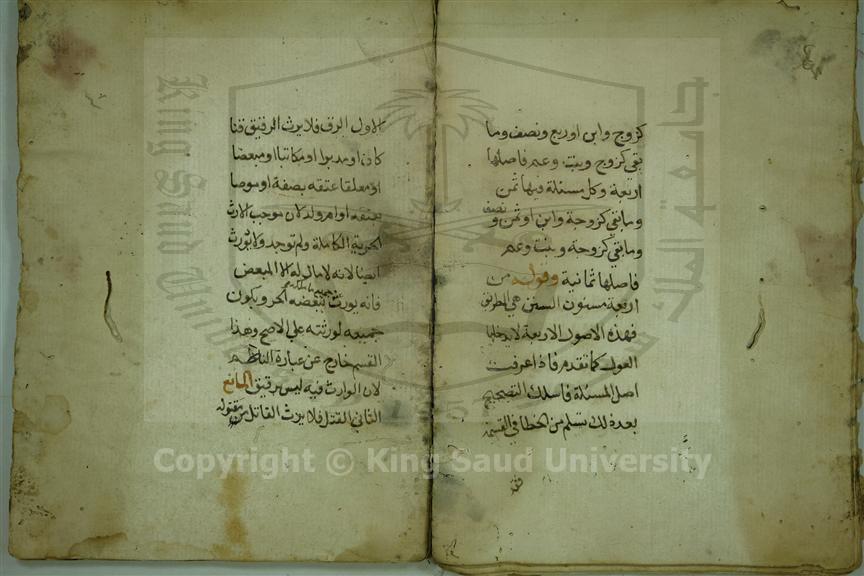 كزوج وابن اوربع ونصف وما
بقي كزوج وبنت وعم فاصلها
اربعة وكل مسئلة فيها ثمن
وما بقي كزوجة وابن اوثمن و نصف
وما بقي كزوجة وبنت وعم
فاصلها ثمانية وقوله من
اربعة مسنون السنن هي الطريق
فهذه الاصول الاربعة لا يدخلها
العول كما تقدم فاذا عرفت
اصل المسئلة فاسلك التصحيح
بعد ذلك تسلم من الخطا في القسمة
الاول الرق فلا يرث الرقيق قنا
كان او مدبرا او مكاتبا او مبعضا
او معلقا عتقه بصفة او موصا
بعتقه او ام ولد لان موجب الارث
الحرية الكاملة ولم توجد ولا يورث
ايضا لانه لا مال له الا المبعض
فانه يورث ببعضه الحر ويكون
جميعه لورثته على الاصح وهذا
القسم خارج عن عبارة الناظم
لان الوارث فيه ليس برقيق المانع
الثاني القتل فلا يرث القاتل من مقتوله
King Saud University
جامعة الملك
1957
Copyright © King Saud University